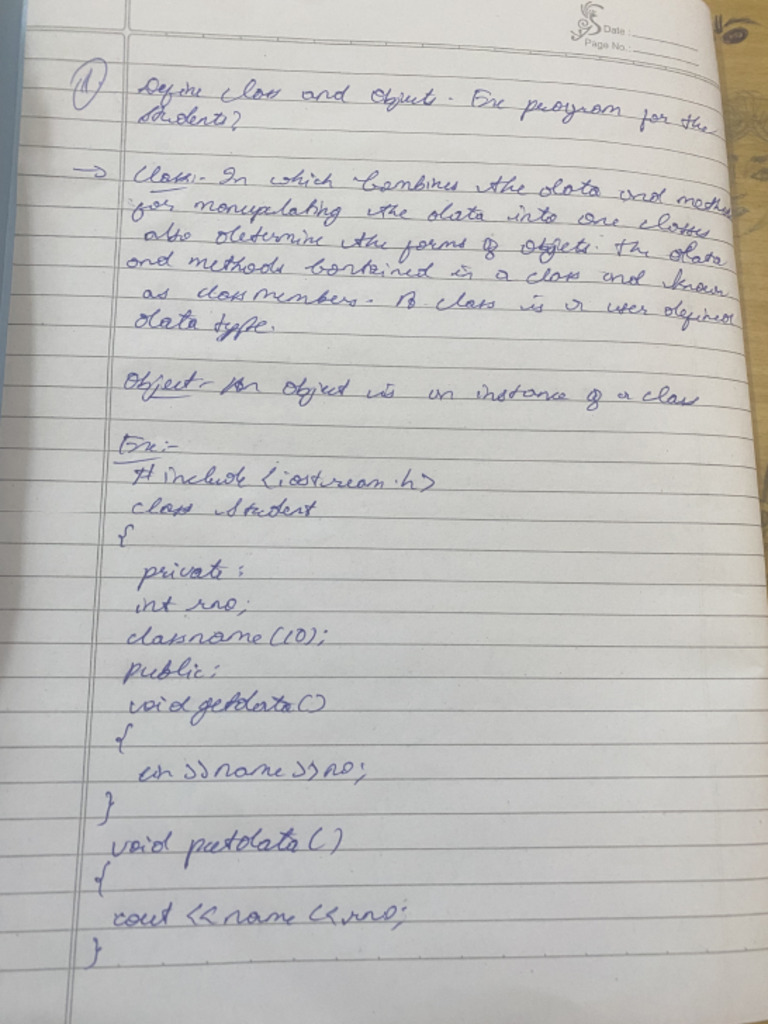 Date :
Page No.:
1 Define class and Objects. Exe program for the
Students?
→ Class:- In which combines the data and metho
for monupalating the data into one classes
also determine the forms of objets. the data
and methods contained in a class and known
as class members. A class is a user defined
data type.
Object:- An Object is an instance of a class
Exe:-
#include <iostream.h>
class Student
{
private:
int rno;
classname (10);
public:
void getdata()
{
cin >>name >>rno;
}
void putdata()
{
cout <<name <<rno;
}